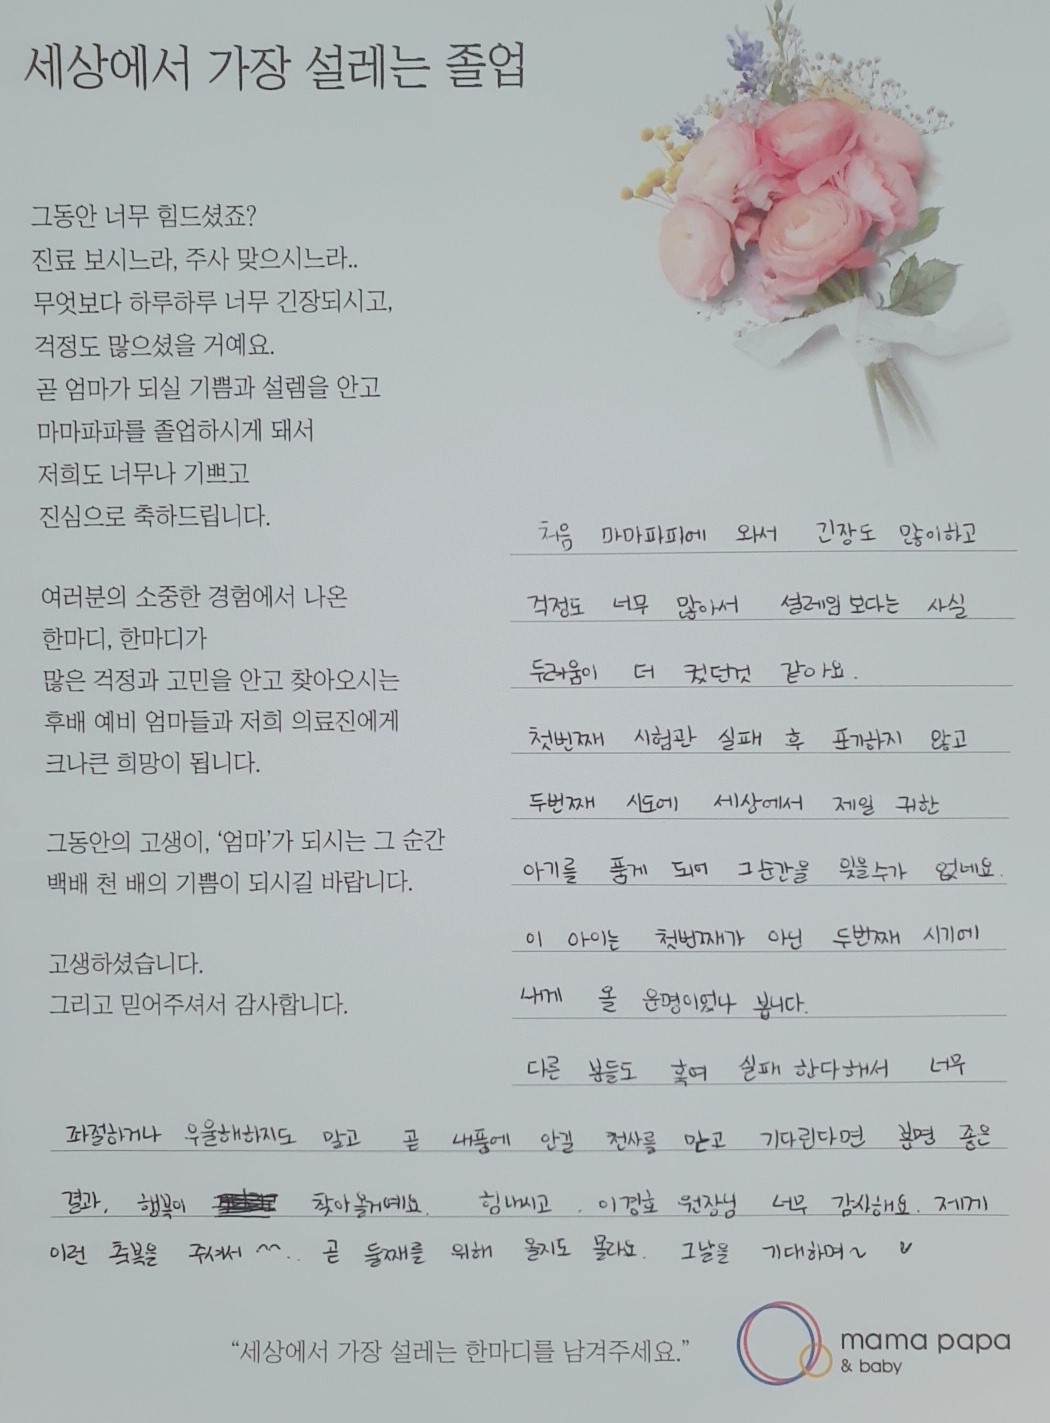 세상에서 가장 설레는 졸업
그동안 너무 힘드셨죠?
진료 보시느라, 주사 맞으시느라..
무엇보다 하루하루 너무 긴장되시고,
걱정도 많으셨을 거예요.
곧 엄마가 되실 기쁨과 설렘을 안고
마마파파를 졸업하시게 돼서
저희도 너무나 기쁘고
진심으로 축하드립니다.
여러분의 소중한 경험에서 나온
한마디, 한마디가
많은 걱정과 고민을 안고 찾아오시는
후배 예비 엄마들과 저희 의료진에게
크나큰 희망이 됩니다.
그동안의 고생이, ‘엄마’가 되시는 그 순간
백배 천 배의 기쁨이 되시길 바랍니다.
고생하셨습니다.
그리고 믿어주셔서 감사합니다.
처음 마마파파에 와서 긴장도 많이하고
걱정도 너무 많아서 설레임 보다는 사실
두려움이 더 컸던것 같아요.
첫번째 시험관 실패 후 포기하지 않고
두번째 시도에 세상에서 제일 귀한
아기를 품게 되어 그순간을 잊을수가 없네요.
이 아이는 첫번째가 아닌 두번째 시기에
나에게 올 운명이었나 봅니다.
다른 분들도 혹여 실패 한다해서 너무
좌절하거나 우울해하지도 말고 곧 내품에 안길 천사를 믿고 기다린다면 분명 좋은
결과, 행복이 찾아올거예요. 힘내시고. 이경호 원장님 너무 감사해요. 제게
이런 축복을 주셔서 ^^.. 곧 둘째를 위해 올지도 몰라요. 그날을 기대하며~
“세상에서 가장 설레는 한마디를 남겨주세요.”
mama papa
& baby